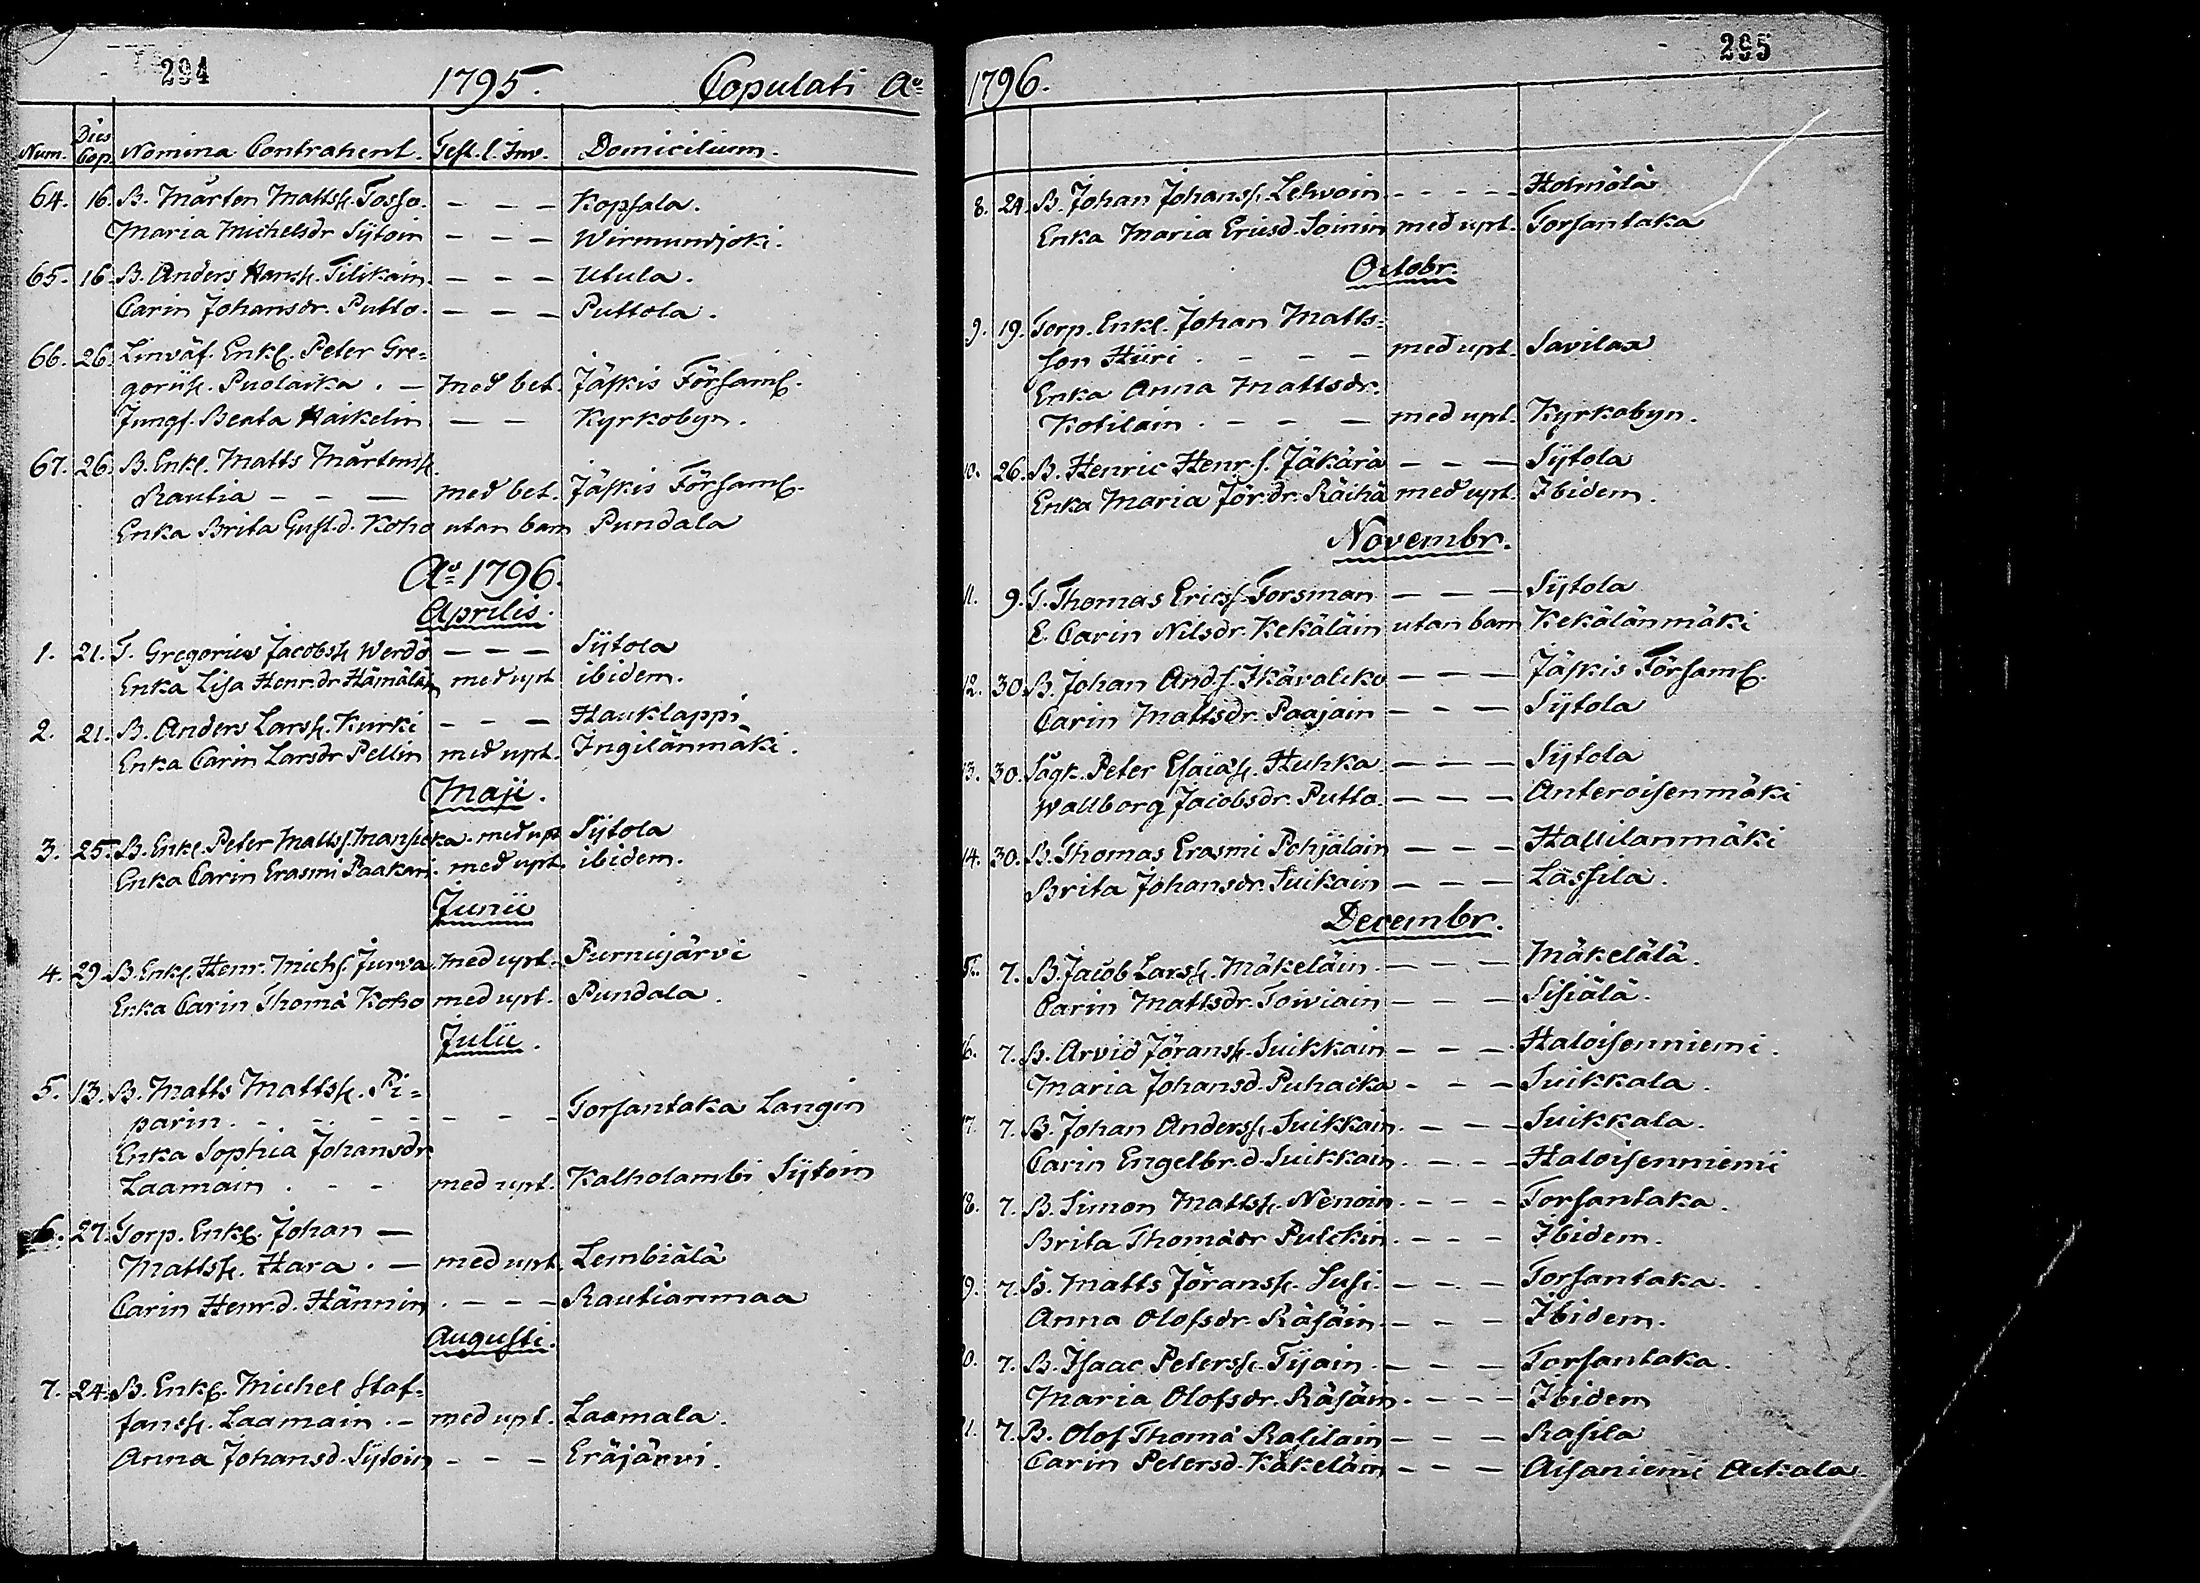 294
1795. Copulati Ao
Num. Dies Cop. Nomina Contrahent. Test. l. Inv. Domicilium.
64. 16. B. Mårten Mattss. Tosso. - - - Kopsala.
Maria Michelsdr Sÿtoin - - - Wirmundjoki.
65. 16. B. Anders Hanss. Tilikain. - - - Utula.
Carin Johansdr. Putto. - - - Puttola.
66. 26. Linväf. Enkl. Peter Gre=
goriiss. Puolaika. - med bet. Jäskis Församl.
Jungf. Beata Haikelin - - Kyrkobyn.
67. 26. B. Enkl. Matts Mårtenss.
Rautia - - - med bet. Jäskis Församl.
Enka Brita Gust.d. Koho utan barn Pundala
Ao 1796.
Aprilis.
1. 21. T. Gregorius Jacobss. Werdo - - - Sÿtola
Enka Lisa Henr.dr Hämäläin med upt ibidem.
2. 21. B. Anders Larss. Kurki - - - Hauklappi
Enka Carin Larsdr Pellin med upt. Ingilänmäki.
Maji.
3. 25. B. Enkl. Peter Matts s. Mansikka. med upt Sÿtola
Enka Carin Erasmi Paakari. med upt. ibidem.
Junii
4. 29. B. Enkl. Henr. Mich s. Jurva. med upt. Purnujärvi
Enka Carin Thomæ Koho med upt. Pundala.
Julii.
5. 13. B. Matts Mattss. Pi=
parin. - - - - - - Torsantaka Langin
Enka Sophia Johansdr
Laamain. - - med upt. Kalholambi Sÿtoin
6. 27. Torp. Enkl. Johan -
Mattss. Hara. - med upt. Lembiälä
Carin Henr.d. Hännin. - - - Rautianmaa
Augusti.
7. 24. B. Enkl. Michel Staf=
fanss. Laamain. - med upt. Laamala.
Anna Johansd. Sÿtoin - - - Eräjärvi.
295
1796.
8. 24. B. Johan Johanss. Lehvoin - - - - - Holmölä
Enka Maria Ericsd. Soinin med upt. Torsantaka
Octobr.
9. 19. Torp. Enkl. Johan Matts=
son Hiiri. - - - med upt. Savilax
Enka Anna Mattsdr.
Kotilain. - - - med upt. Kyrkobyn.
10. 26. B. Henric Henr.s. Jäkärä - - - Sÿtola
Enka Maria Jör.dr. Räihä med upt. Ibidem.
Novembr.
11. 9. T. Thomas Ericss. Torsman - - - Sÿtola
E. Carin Nilsdr. Kekäläin utan barn Kekälänmäki
12. 30. B. Johan And.s. Ikävalko - - - Jäskis Församl.
Carin Mattsdr. Paajain - - - Sÿtola
13. 30. Sågk. Peter Esaiæs. Huhka. - - - Sÿtola
Wallborg Jacobsdr. Putto. - - - Anteroisenmäki
14. 30. B. Thomas Erasmi Pohjalain - - - Hallilanmäki
Brita Johansdr. Suikain - - - Lässila.
Decembr.
7. B. Jacob Larss. Mäkeläin. - - - Mäkelälä.
Carin Mattsdr. Toiviain - - - Sisiälä.
16. 7. B. Arvid Jöranss. Suikkain - - - Haloisenniemi.
Maria Johansd. Puhacka - - - Suikkala.
17. 7. B. Johan Anderss. Suikkain. - - - Suikkala.
Carin Engelbr.d. Suikkain. - - - Haloisenniemi
18. 7. B. Simon Mattss. Nenoin. - - - Torsantaka.
Brita Thomædr Pulckin. - - - Ibidem.
19. 7. B. Matts Jöranss. Susi. - - - Torsantaka.
Anna Olofsdr. Räsäin. - - - Ibidem.
20. 7. B. Isaac Peterss. Tijain. - - - Torsantaka.
Maria Olofsdr. Räsäin. - - - Ibidem
21. 7. B. Olof Thomæ Rasilain - - - Rasila
Carin Petersd. Käkeläin - - - Aisaniemi Ackala